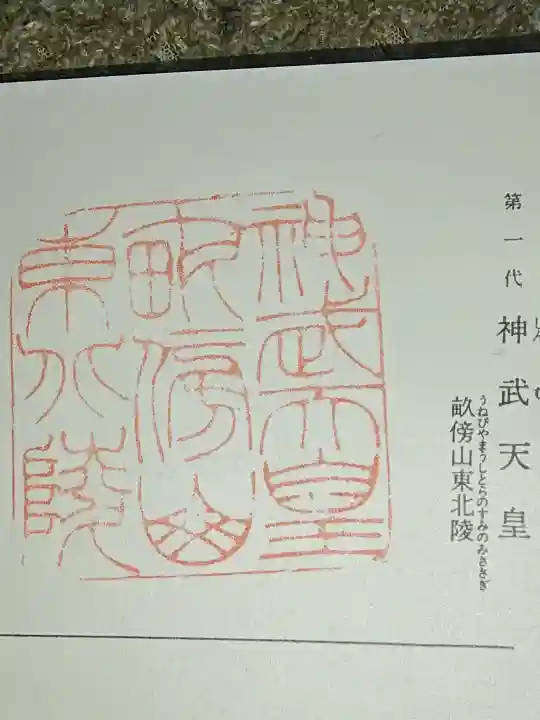 第一代
神武天皇
うねびやまうしとらのすみのみささぎ
畝傍山東北陵
神武天皇
畝傍山
東北陵